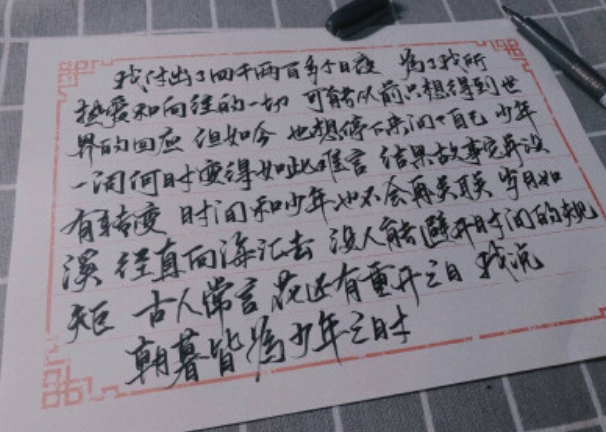 我付出了四千两百多个日夜 為了我所
热爱和向往的一切 可能从前只想得到世
界的回应 但如今 也想停下来问一问自己 少年
一词何时变得如此难言 结果故事完再没
有转变 时间和少年也不会再关联 岁月如
溪 径直向海汇去 没人能避开时间的规
矩 古人常言 花还有重开之日 我说
朝暮皆為少年之时